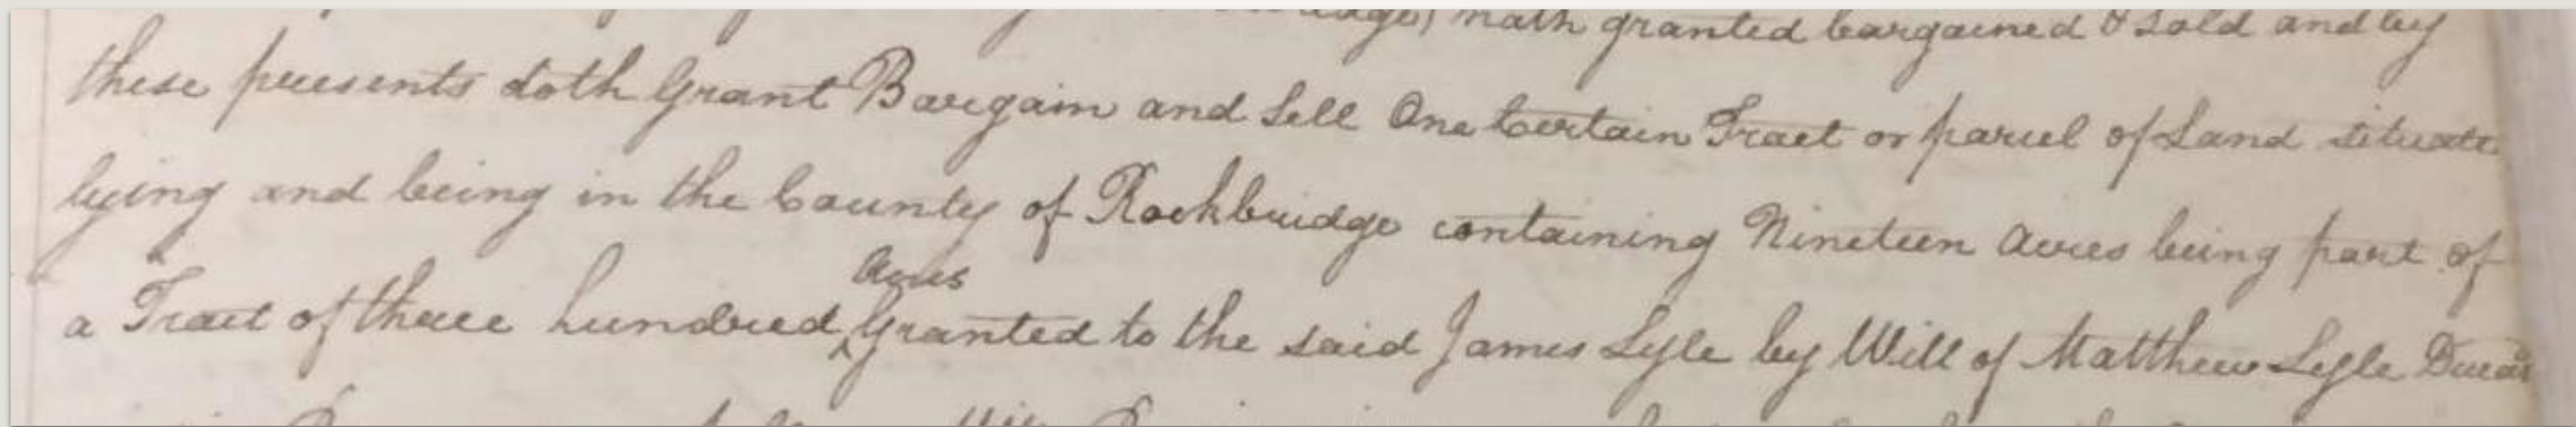 hath granted bargained & Sold and by
these presents doth Grant Bargain and Sell One Certain Tract or parcel of Land situate
lying and being in the County of Rockbridge containing Nineteen Acres being part of
Acres
a Tract of three hundred ^ Granted to the said James Lyle by Will of Matthew Lyle